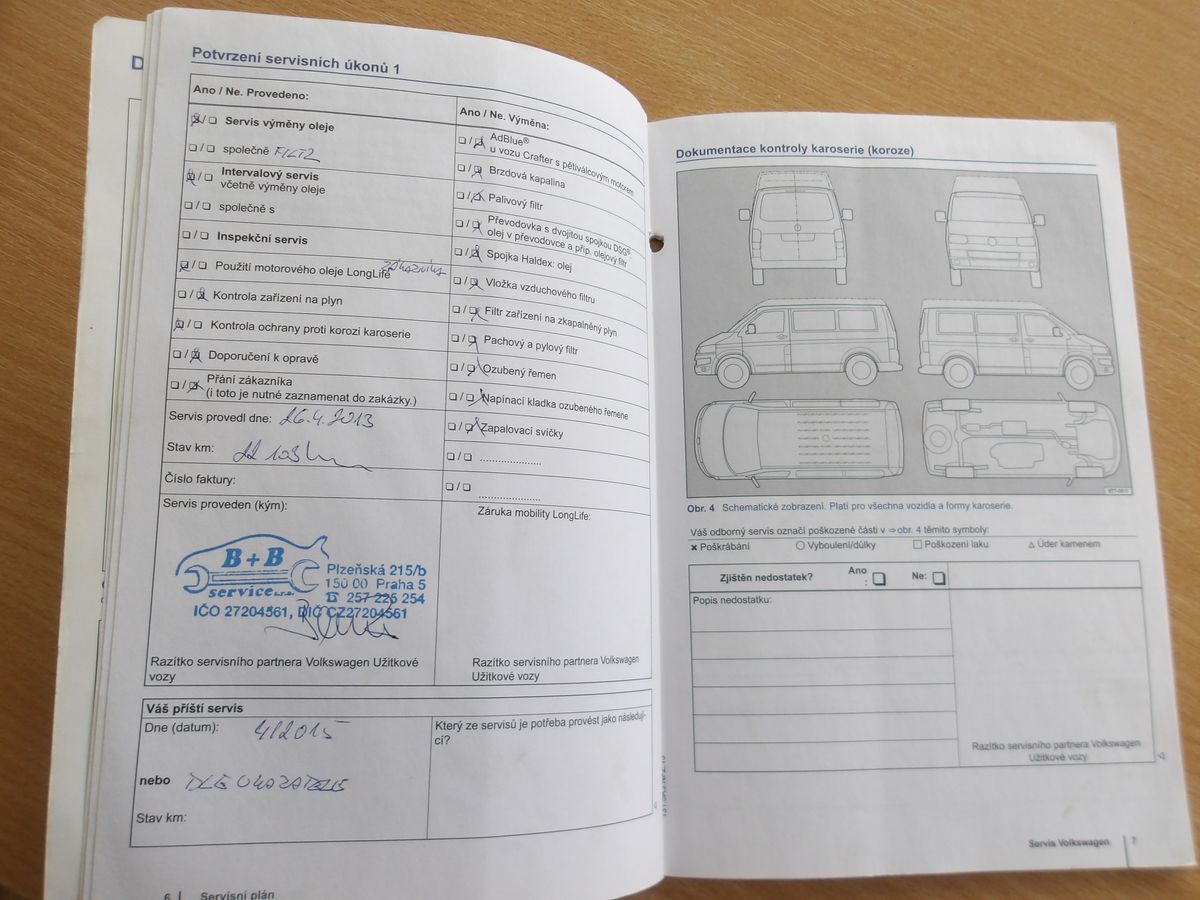 D
Potvrzení servisních úkonů 1
Ano / Ne. Provedeno:
Servis výměny oleje
společně FILTR
Intervalový servis
včetně výměny oleje
společně s
Inspekční servis
Použití motorového oleje LongLife ZÁKAZNÍKA
Kontrola zařízení na plyn
Kontrola ochrany proti korozi karoserie
Doporučení k opravě
Přání zákazníka
(i toto je nutné zaznamenat do zakázky.)
Servis provedl dne: 26.4.2013
Stav km:
Číslo faktury:
Servis proveden (kým):
B+B
service s.r.o.
Plzeňská 215/b
150 00 Praha 5
☎ 257 225 254
IČO 27204561, DIČ CZ27204561
Razítko servisního partnera Volkswagen Užitkové
vozy
Ano / Ne. Výměna:
AdBlue®
u vozu Crafter s pětiválcovým motorem
Brzdová kapalina
Palivový filtr
Převodovka s dvojitou spojkou DSG®:
olej v převodovce a příp. olejový filtr
Spojka Haldex: olej
Vložka vzduchového filtru
Filtr zařízení na zkapalněný plyn
Pachový a pylový filtr
Ozubený řemen
Napínací kladka ozubeného řemene
Zapalovací svíčky
Záruka mobility LongLife:
Razítko servisního partnera Volkswagen
Užitkové vozy
Váš příští servis
Dne (datum): 4/2015
nebo DLE UKAZATELE
Stav km:
Který ze servisů je potřeba provést jako následují-
cí?
6 Servisní plán
Dokumentace kontroly karoserie (koroze)
Obr. 4 Schematické zobrazení. Platí pro všechna vozidla a formy karoserie.
Váš odborný servis označí poškozené části v ⇒ obr. 4 těmito symboly:
× Poškrábání ○ Vyboulení/důlky □ Poškození laku △ Úder kamenem
Zjištěn nedostatek? Ano : Ne:
Popis nedostatku:
Razítko servisního partnera Volkswagen
Užitkové vozy
Servis Volkswagen 7